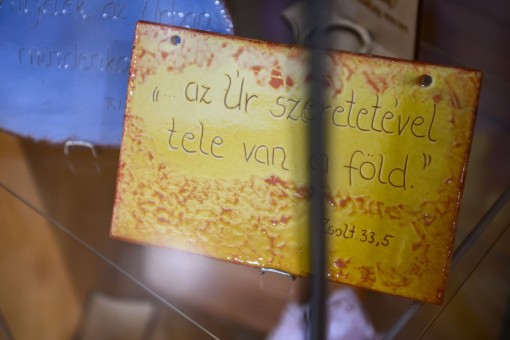 az Úr
mindenki
„... az Úr szeretetével
tele van a föld.”
Zsolt. 33,5